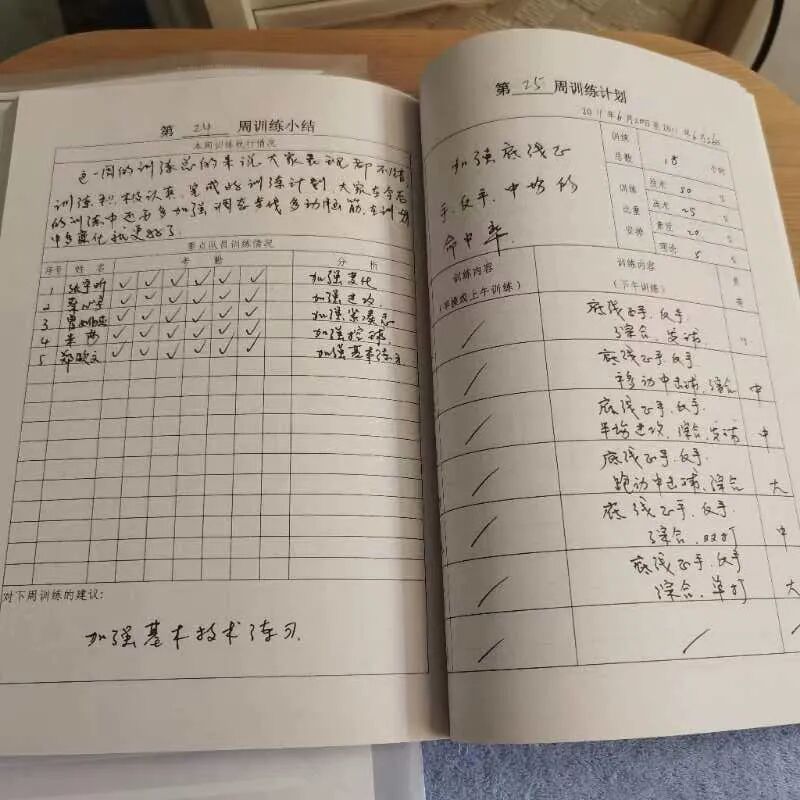 第 24 周训练小结
本周训练执行情况
这一周的训练总的来说大家表现都不错,
训练积极认真,完成好训练计划,大家在今后
的训练中还要多加强调在多动脑筋,在训练
中多变化就更好了。
重点队员训练情况
序号 姓名 考勤 分析
1 ✓ ✓ ✓ ✓ ✓ ✓ 加强变化
2 ✓ ✓ ✓ ✓ ✓ ✓ 加强进攻
3 ✓ ✓ ✓ ✓ ✓ ✓ 加强
4 朱 ✓ ✓ ✓ ✓ ✓ ✓ 加强控球
5 郑 ✓ ✓ ✓ ✓ ✓ ✓ 加强基本练习
对下周训练的建议:
加强基本技术练习
第 25 周训练计划
加强底线正
手、反手、中场的
命中率.
训练总数 18 小时
训练比重安排
技术 50 %
战术 25 %
素质 20 %
理论 5 %
训练内容
(早操或上午训练)
训练内容
(下午训练)
底线正手.反手.
综合.发球.
底线正手.反手.
移动中击球.综合 中
底线正手.反手.
半场进攻.综合.发球 中
底线正手.反手.
跑动中击球.综合 大
底线正手.反手.
综合.双打 中
底线正手.反手
综合.单打 大